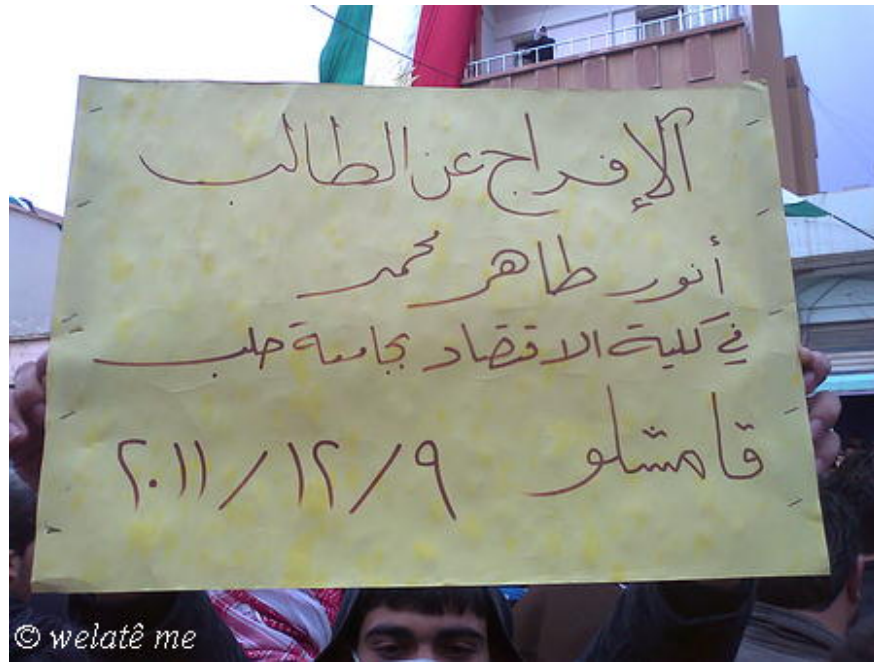 الإفراج عن الطالب
أنور طاهر محمد
في كلية الاقتصاد بجامعة حلب
قامشلو ٢٠١١/١٢/٩
© welatê me